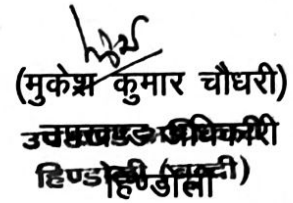 (मुकेश कुमार चौधरी)
उपखण्ड अधिकारी
हिण्डोली (बून्दी)
हिण्डोली